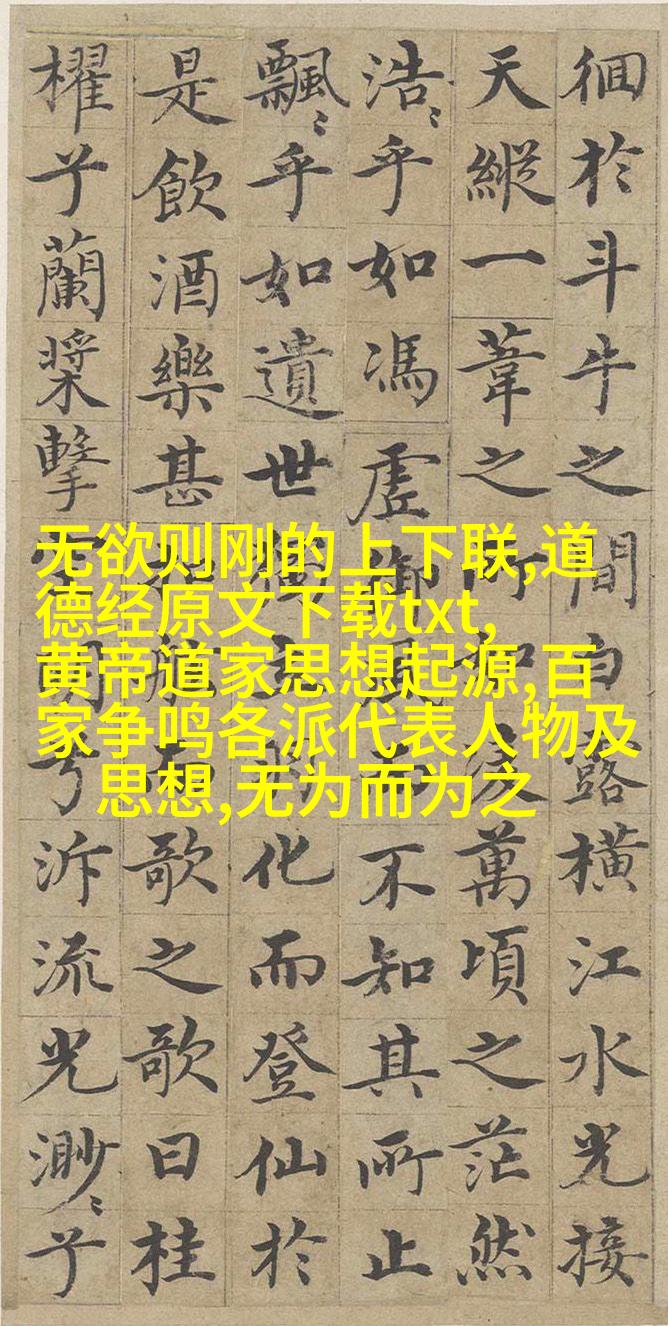 徊於斗牛之間白露橫江水光接
天縱一葦之所如凌萬頃之茫然
浩〻乎如馮虛御風而不知其所止
飄〻乎如遺世獨立羽化而登仙於
是飲酒樂甚扣舷而歌之歌曰桂
櫂兮蘭槳擊空明兮泝流光渺〻兮
无欲则刚的上下联,道
德经原文下载txt,
黄帝道家思想起源,百
家争鸣各派代表人物及
思想,无为而为之